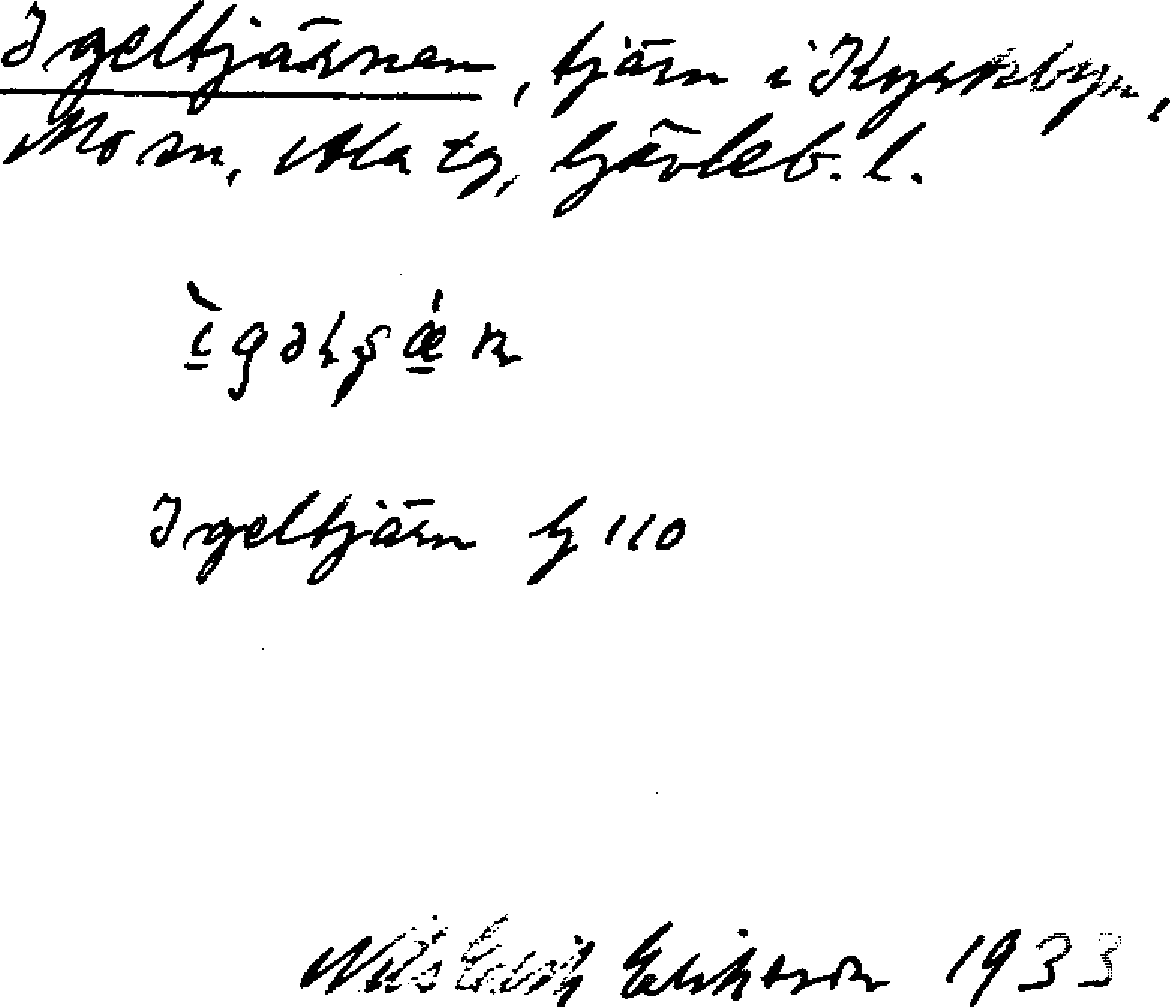 Igeltjärnen, tjärn i Kyrkbyn,
Mo sn, Ala tg, Gävleb. l.
Igeltjärn G 110
Nils Erik Eriksson 1933